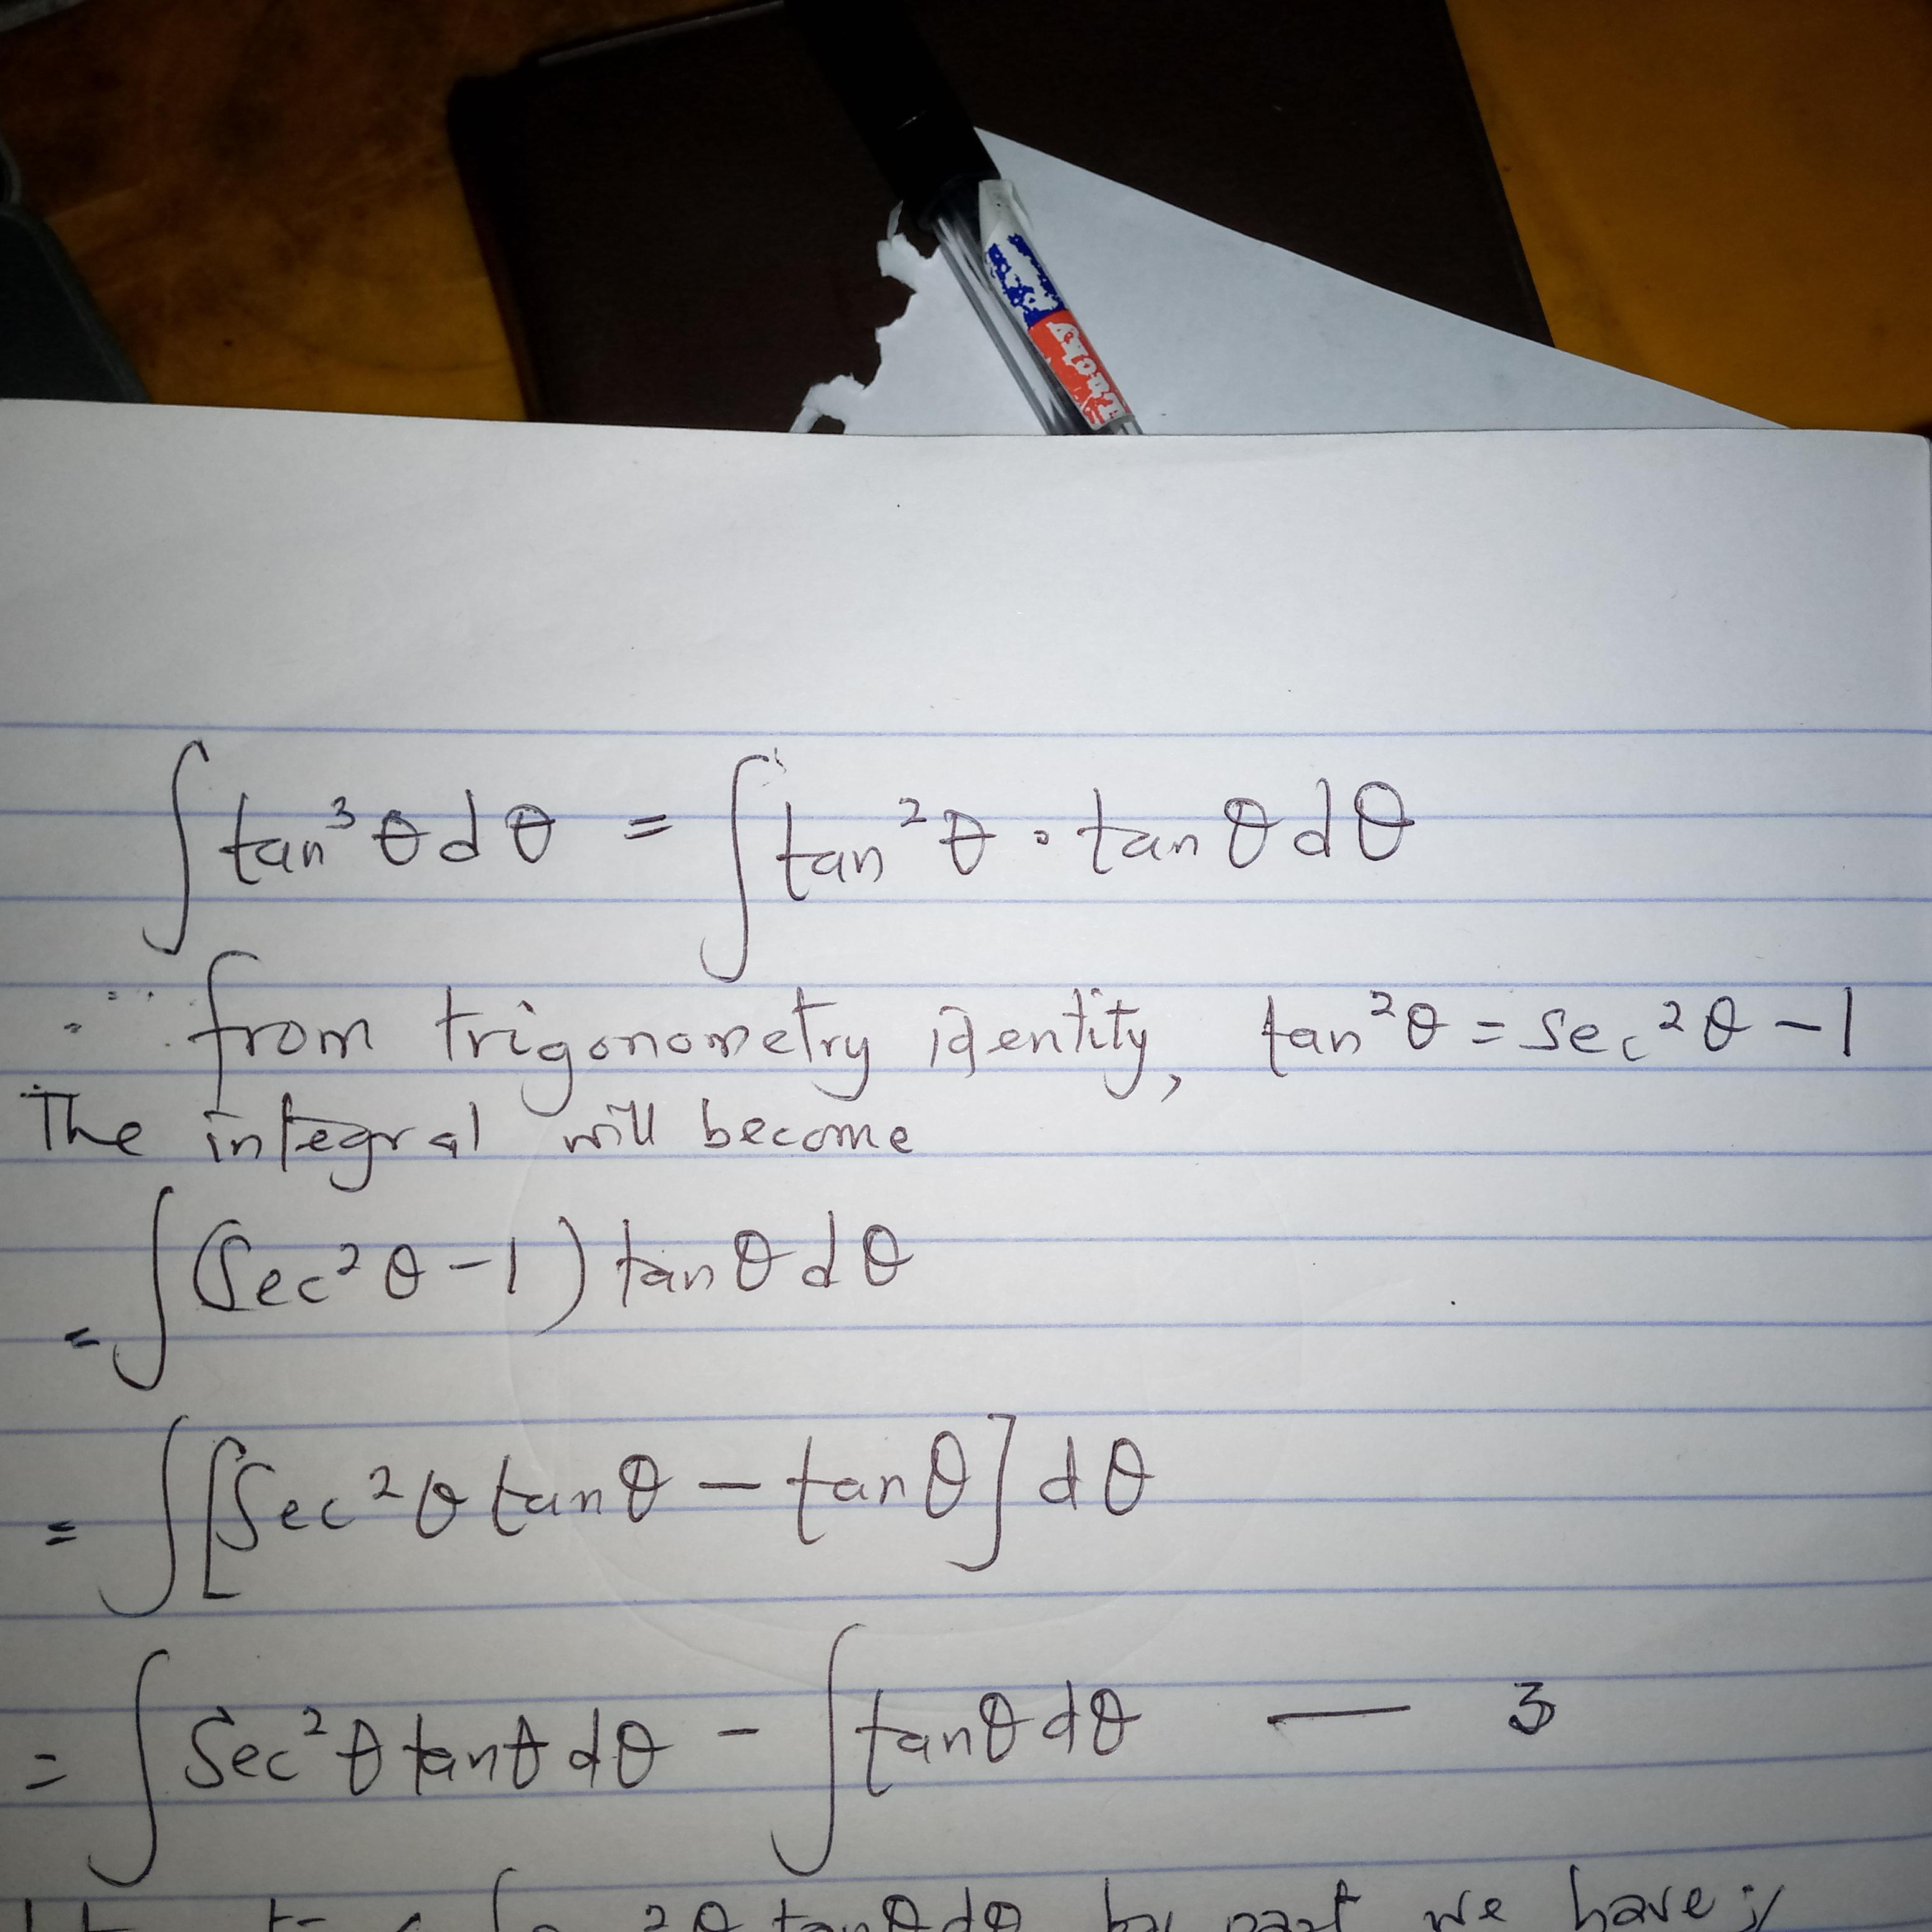 ∫ tan³ θ dθ = ∫ tan² θ · tan θ dθ
∵ from trigonometry identity, tan² θ = sec² θ − 1
The integral will become
= ∫ (Sec² θ − 1) tan θ dθ
= ∫ [Sec² θ tan θ − tan θ] dθ
= ∫ Sec² θ tan θ dθ − ∫ tan θ dθ — 3
∫ 2θ tan θ dθ by part we have;